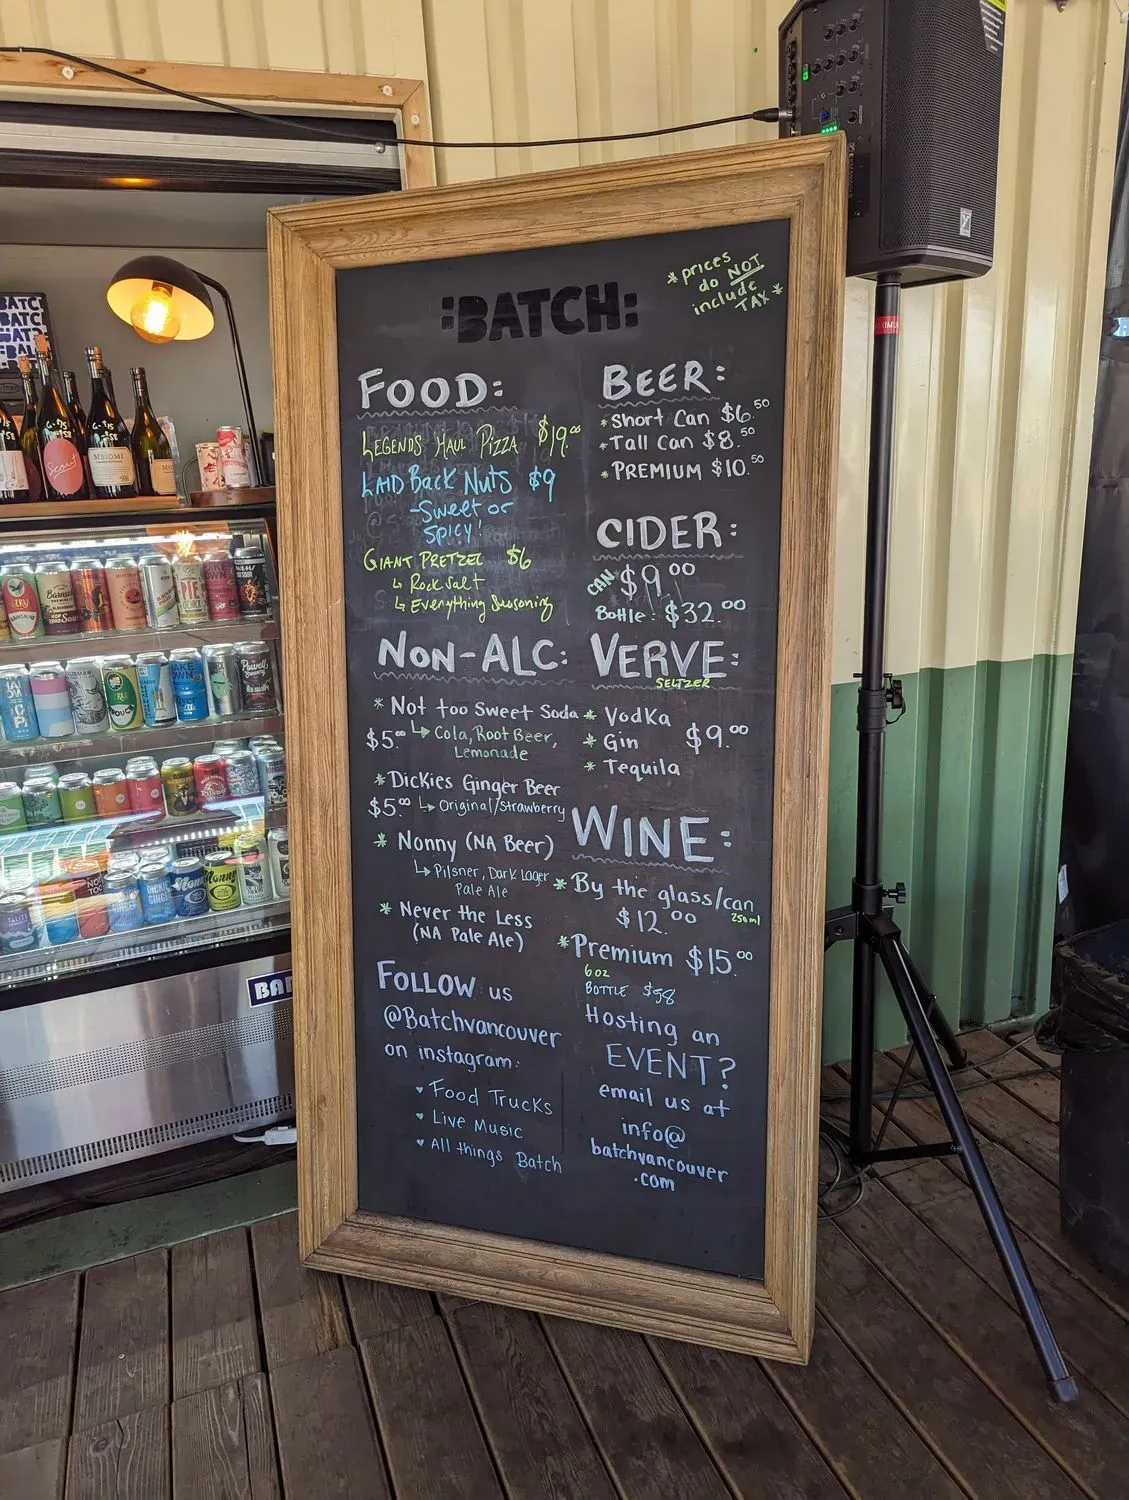 :BATCH:
*prices
do NOT
include
TAX*
FOOD:
LEGENDS HAUL PIZZA $19.00
LAID BACK NUTS $9
-Sweet or
SPICY!
GIANT PRETZEL $6
↳ Rock salt
↳ Everything Seasoning
NON-ALC:
* Not too Sweet Soda
$5.00 ↳ Cola, Root Beer,
Lemonade
* Dickies Ginger Beer
$5.00 ↳ Original/Strawberry
* Nonny (NA Beer)
↳ Pilsner, Dark Lager
Pale Ale
* Never the Less
(NA Pale Ale)
FOLLOW us
@Batchvancouver
on instagram:
♥ Food Trucks
♥ Live Music
♥ All things Batch
BEER:
* Short Can $6.50
* Tall Can $8.50
* PREMIUM $10.50
CIDER:
CAN $9.00
Bottle: $32.00
VERVE:
SELTZER
* Vodka
* Gin $9.00
* Tequila
WINE:
* By the glass/can
$12.00 250ml
* Premium $15.00
6oz
BOTTLE $58
Hosting an
EVENT?
email us at
info@
batchvancouver
.com
MBIOMI
BATCH
BATCH
Nonny
DICKIE'S
GINGER
Powell